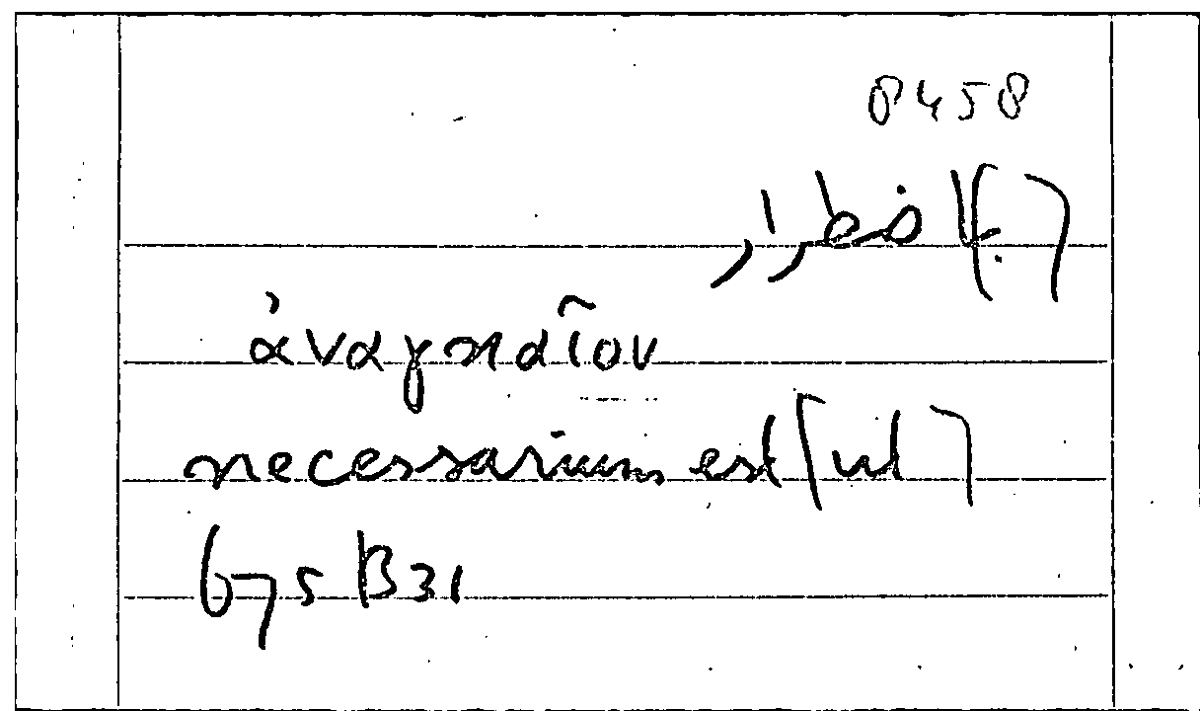 8458
[ب]اضطرار
ἀναγκαῖον
necessarium est [ut]
675 B31